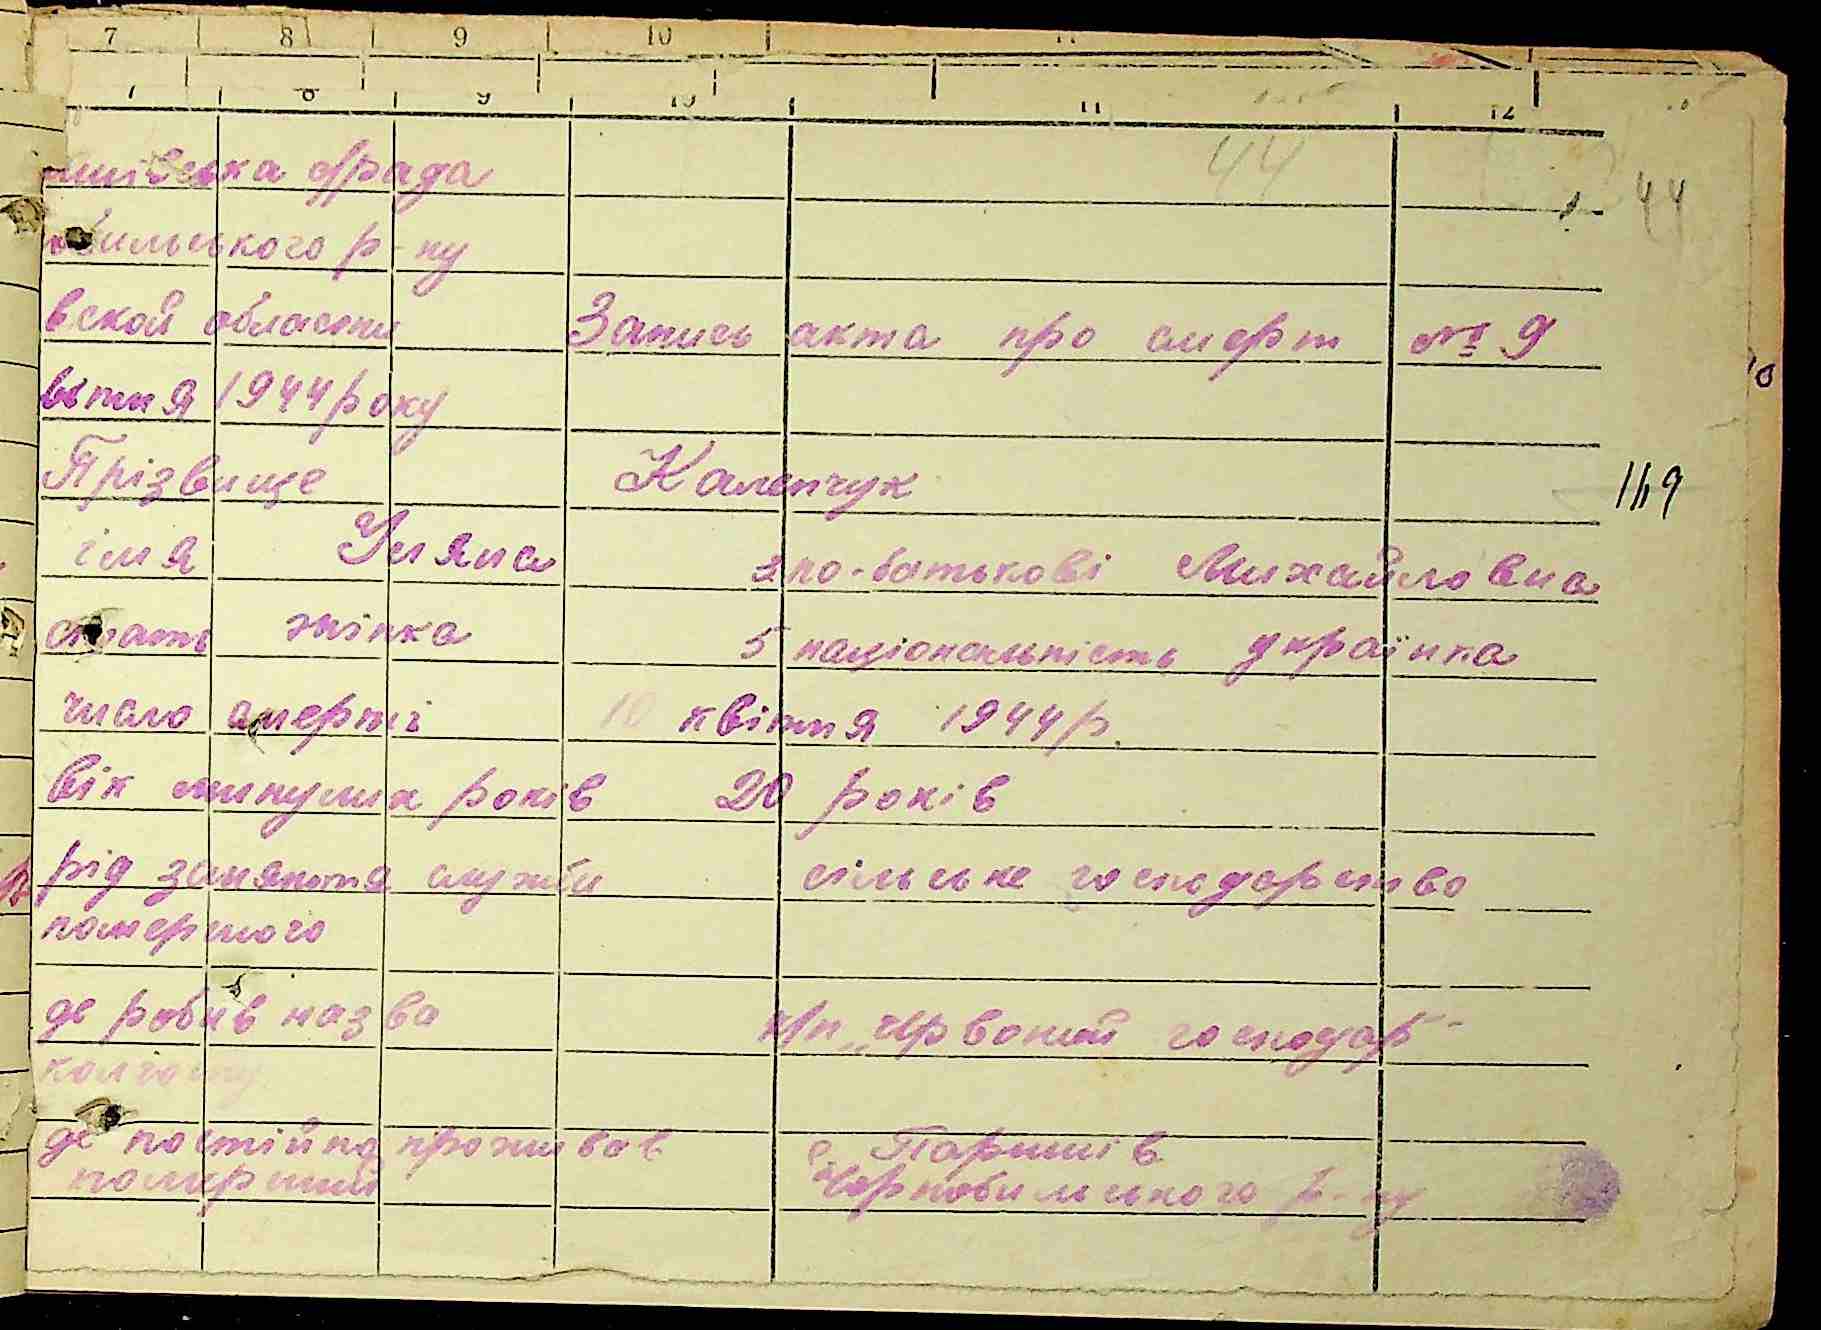 7 8 9 10 11
7 8 9 10 11 12
44
шівська с/рада 44
обильського р-ну
вской области Запись акта про смерт № 9
вітня 1944 року
Прізвище Каленчук
149
імя Уляна по-батькові Михайловна
стать жінка 5 національність українка
число смерті 10 квітня 1944 р.
вік минулих років 20 років
рід заняття служби сільське господарство
помершого
де робив назва к/п „Червоний господар"
колгоспу
де постійно проживав с. Паришів
померший Чорнобильського р-ну